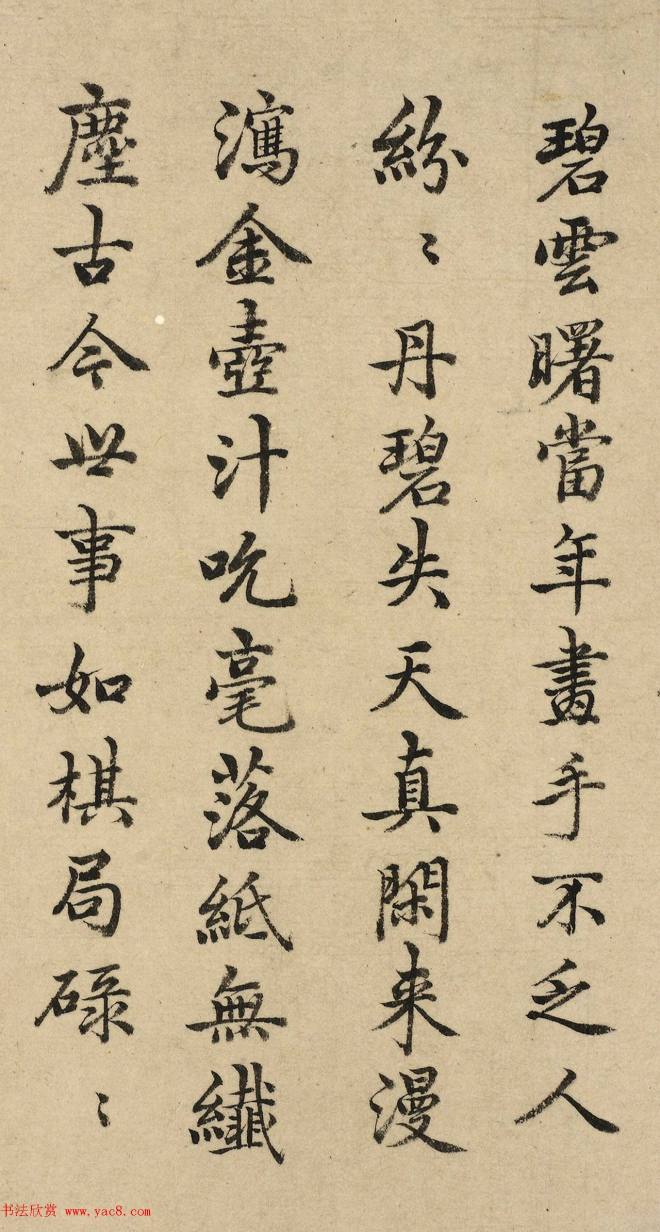 碧雲曙當年畫手不乏人
紛〻丹碧失天真閑来漫
瀉金壺汁吮毫落紙無纖
塵古今世事如棋局碌〻
书法欣赏 www.yac8.com